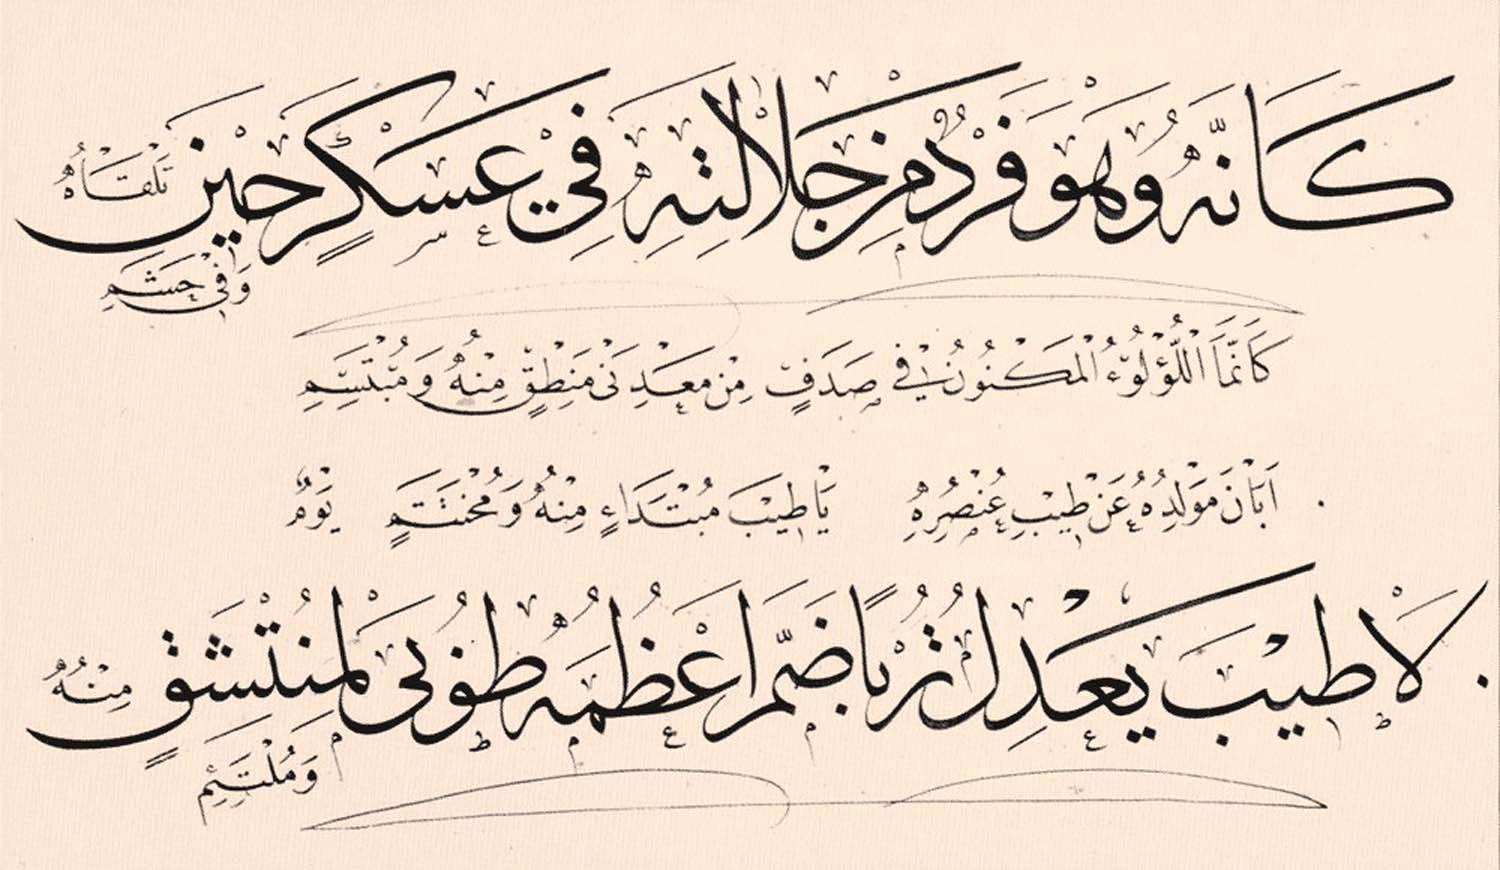 كَأَنَّهُ وَهْوَ فَرْدٌ مِنْ جَلَالَتِهِ فِي عَسْكَرٍ حِينَ تَلْقَاهُ
وَفِي حَشَمِ
كَأَنَّمَا اللُّؤْلُؤُ الْمَكْنُونُ فِي صَدَفٍ مِنْ مَعْدِنَيْ مَنْطِقٍ مِنْهُ وَمُبْتَسِمِ
أَبَانَ مَوْلِدُهُ عَنْ طِيبِ عُنْصُرِهِ يَا طِيبَ مُبْتَدَاءٍ مِنْهُ وَمُخْتَتَمِ يَوْمٌ
لَا طِيبَ يَعْدِلُ تُرْبًا ضَمَّ أَعْظُمَهُ طُوبَى لِمُنْتَشِقٍ مِنْهُ
وَمُلْتَئِمِ